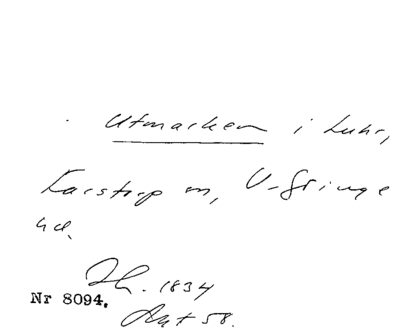 Utmarken i Luhr,
Karstorp m, V-Gringe
hd.
Ih. 1834
Nr 8094.
Akt 58.